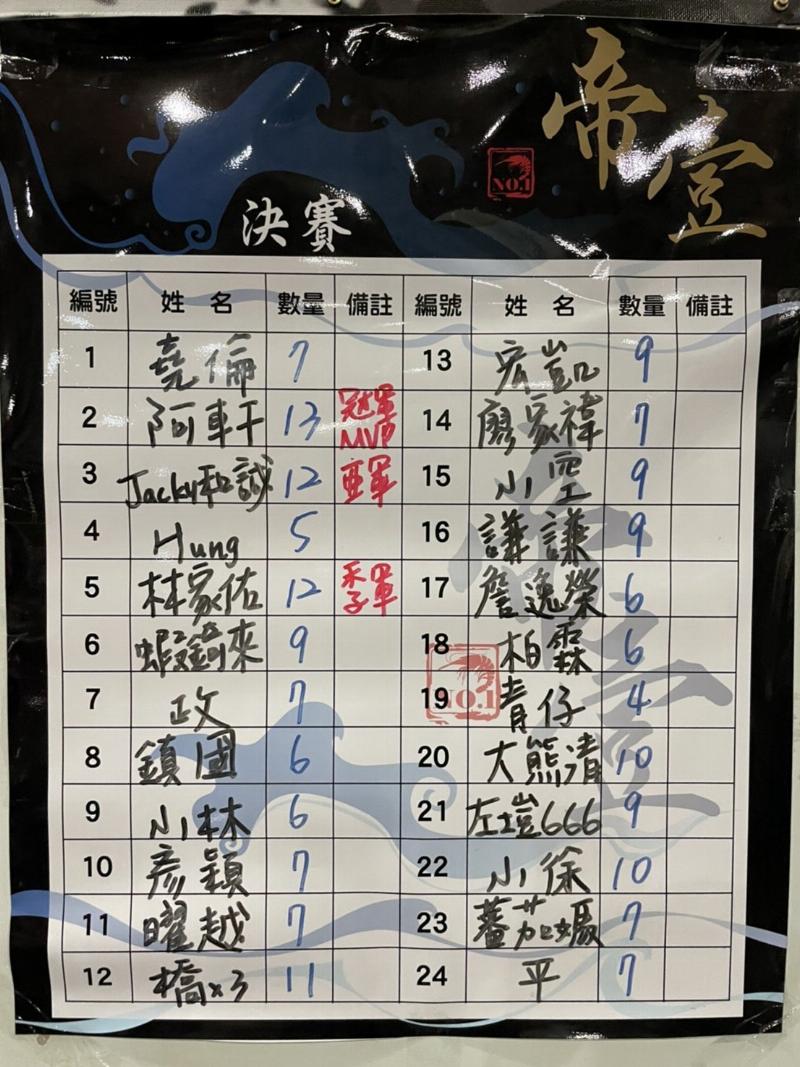 帝壹
NO.1
決賽
編號 姓名 數量 備註 編號 姓名 數量 備註
1 堯倫 7 13 宏凱 9
2 阿軒 13 冠軍MVP 14 廖家禕 7
3 Jacky和誠 12 亞軍 15 小空 9
4 Hung 5 16 謙謙 9
5 林家佑 12 季軍 17 詹逸榮 6
6 蝦鉤來 9 18 柏霖 6
7 政 7 19 青仔 4
8 鎮國 6 20 大熊清 10
9 小林 6 21 左塏666 9
10 彥穎 7 22 小徐 10
11 曜越 7 23 蕃茄嫣 7
12 橋x3 11 24 平 7
帝壹
NO.1